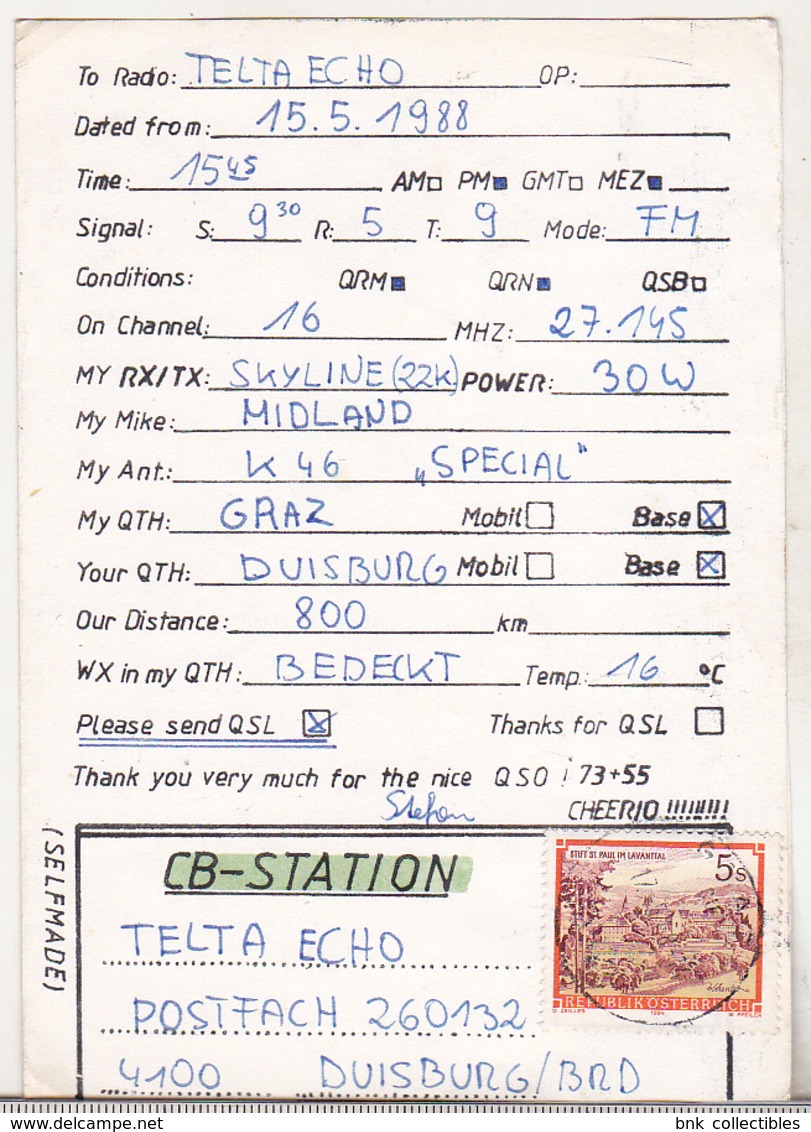 To Radio: TELTA ECHO OP:
Dated from: 15.5.1988
Time: 15 45 AM☐ PM■ GMT☐ MEZ■
Signal: S: 9 30 R: 5 T: 9 Mode: FM
Conditions: QRM■ QRN■ QSB☐
On Channel: 16 MHZ: 27.145
MY RX/TX: SKYLINE (22K) POWER: 30 W
My Mike: MIDLAND
My Ant.: K 46 „SPECIAL"
My QTH: GRAZ Mobil☐ Base☒
Your QTH: DUISBURG Mobil☐ Base☒
Our Distance: 800 km
WX in my QTH: BEDECKT Temp.: 16 °C
Please send QSL ☒ Thanks for QSL ☐
Thank you very much for the nice QSO ! 73+55
Stefan CHEERIO !!!!!!!!!
(SELFMADE)
CB-STATION
TELTA ECHO
POSTFACH 260132
4100 DUISBURG/BRD
STIFT ST. PAUL IM LAVANTTAL
5 S
REPUBLIK ÖSTERREICH
O. ZEILLER 1984 W. PFEILER
bnk collectibles